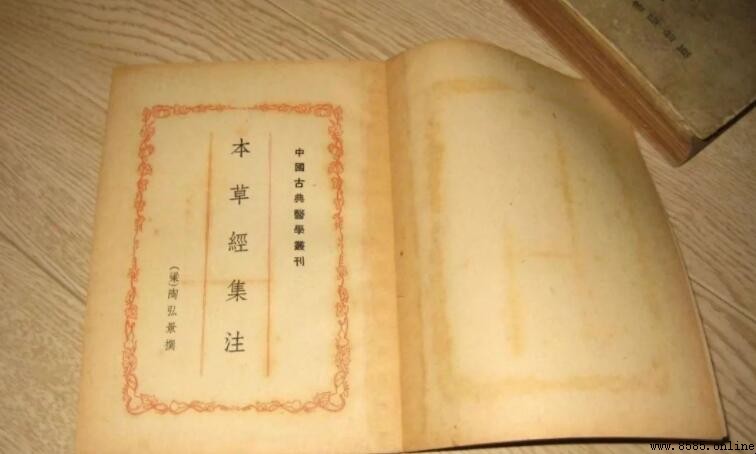 中國古典醫學叢刊
本草經集注
(梁)陶弘景撰
www.8585.online